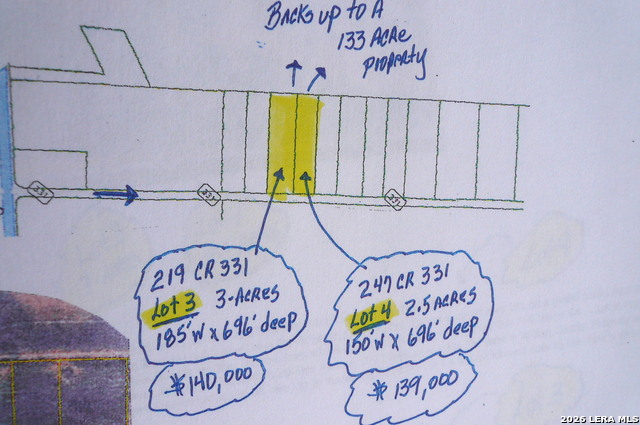 Backs up to A
133 Acre
property
331
331
331
219 CR 331
Lot 3 3-Acres
185'W x 696' deep
$140,000
247 CR 331
Lot 4 2.5 Acres
150'W x 696' deep
$139,000
2026 LERA MLS